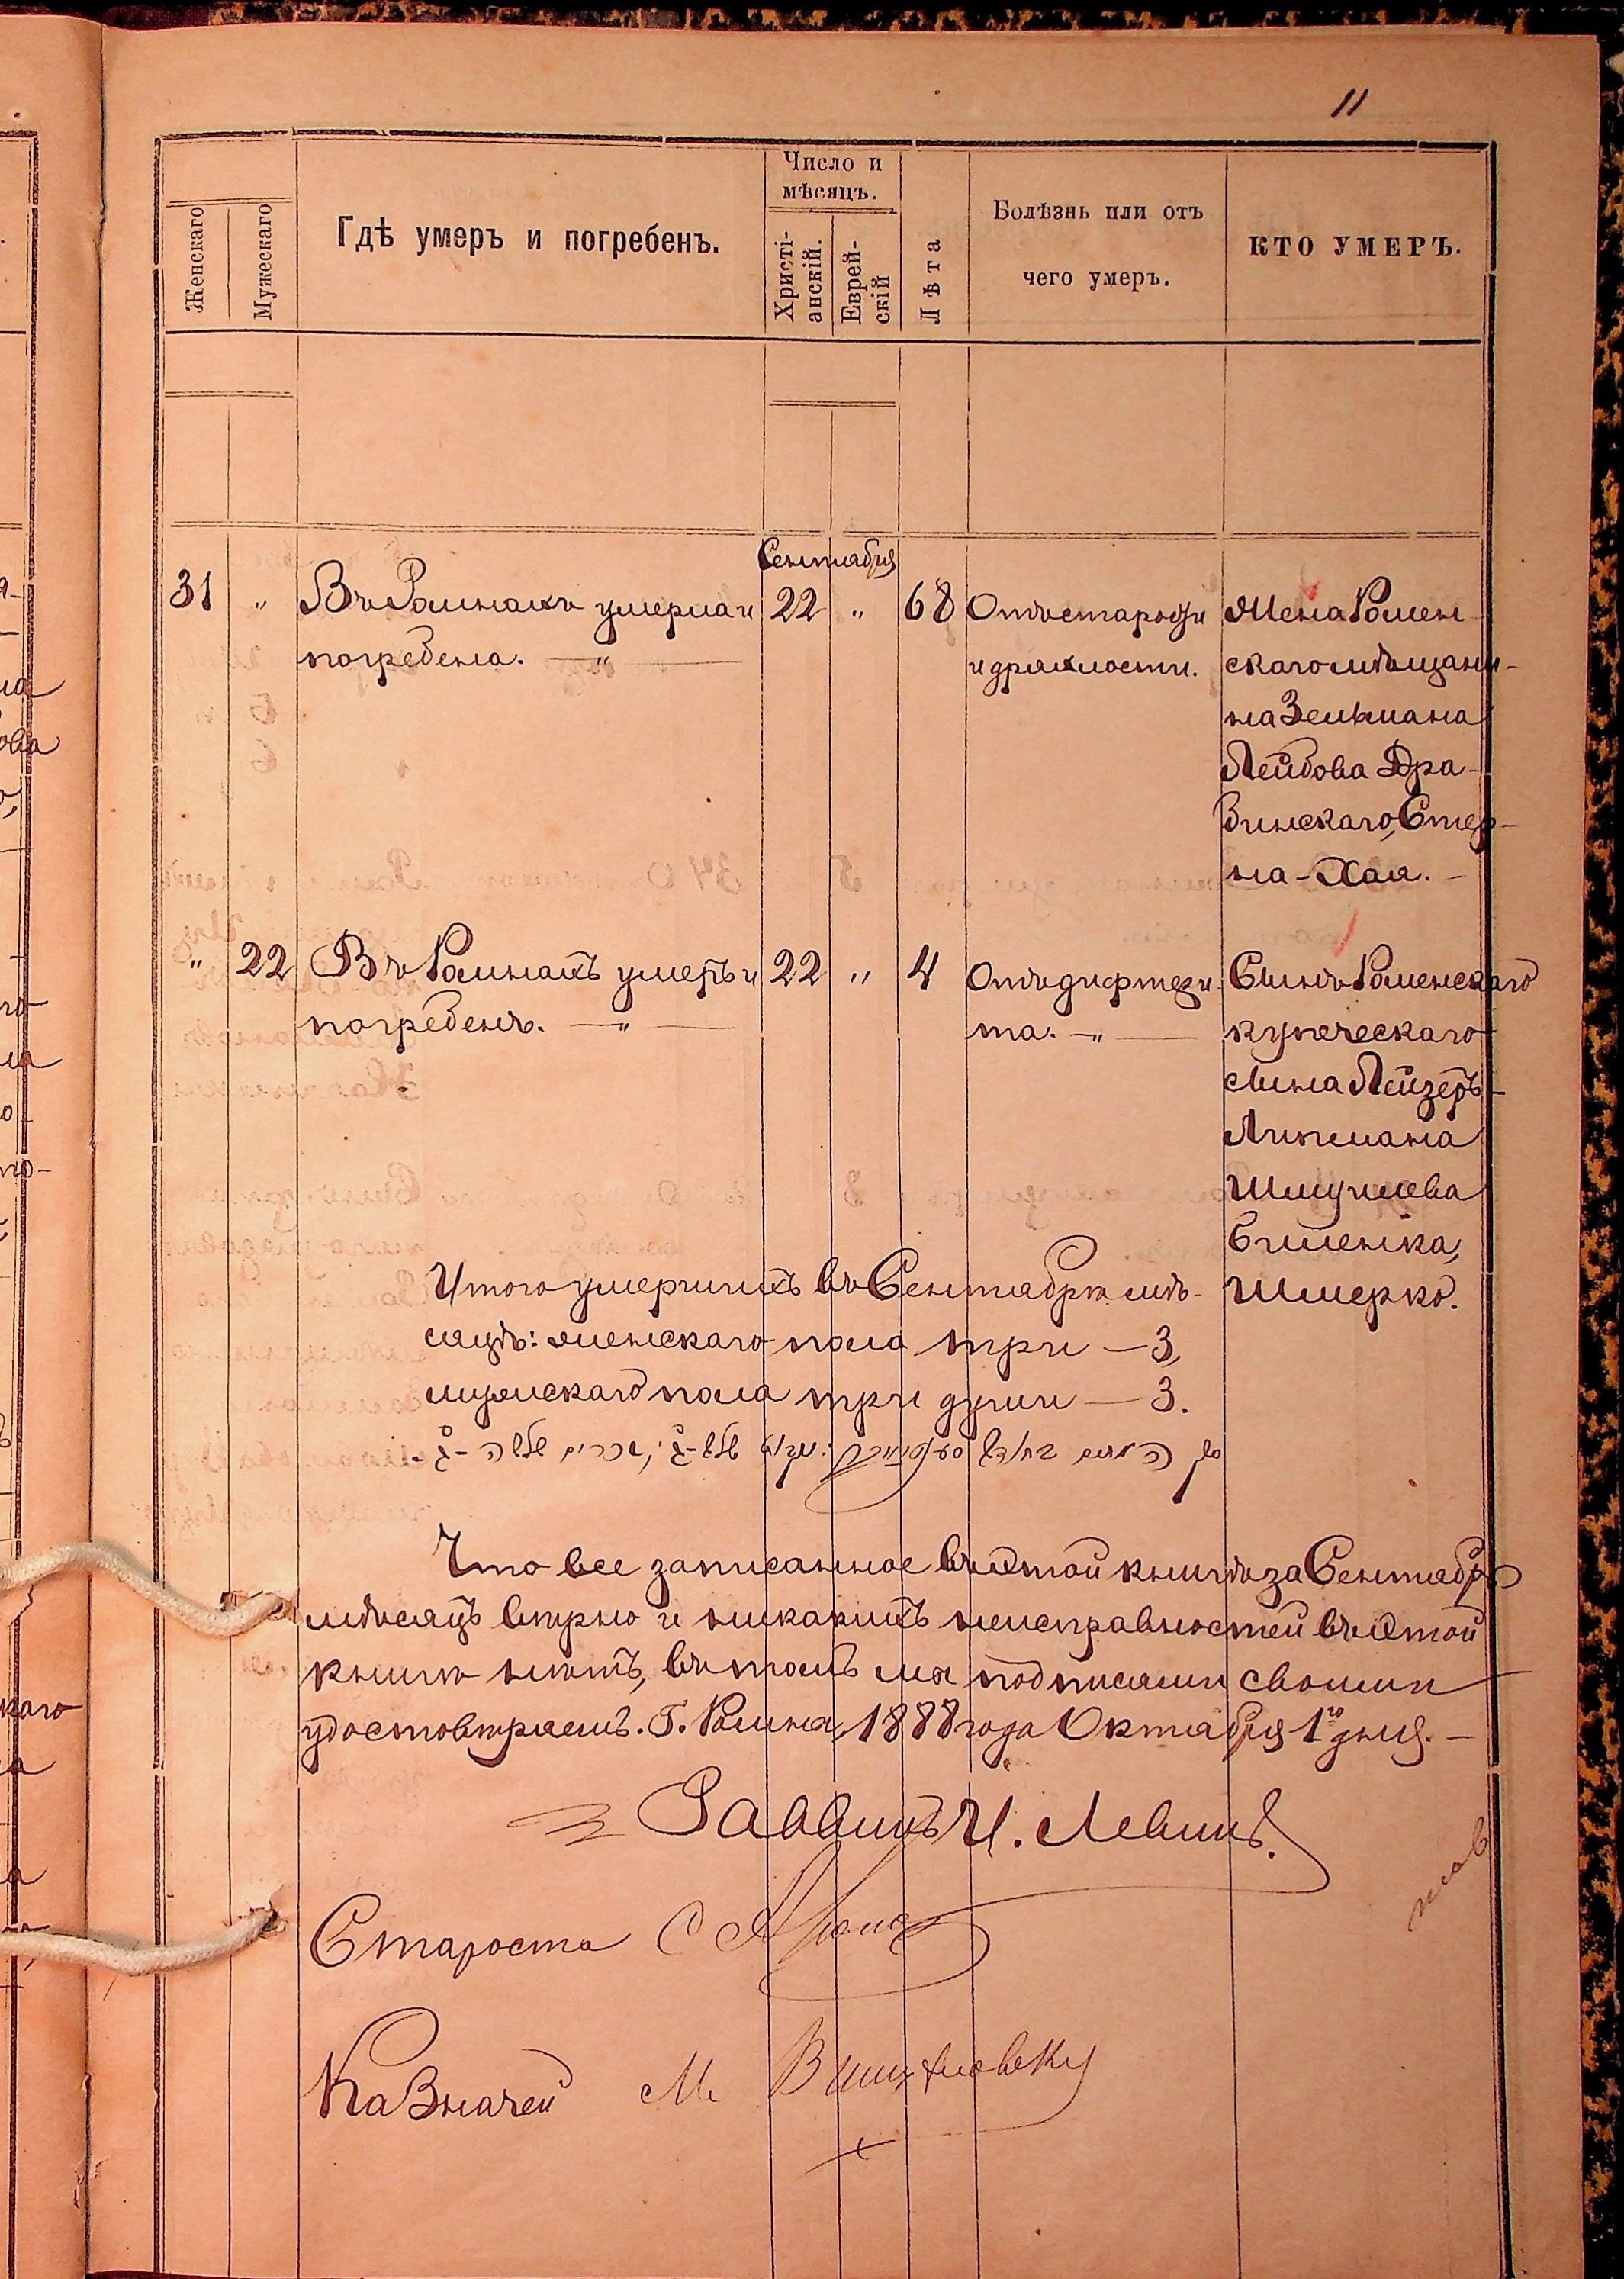 11
Женскаго
Мужескаго
Гдѣ умеръ и погребенъ.
Число и
мѣсяцъ.
Христі-
анскій.
Еврей-
скій
Лѣта
Болѣзнь или отъ
чего умеръ.
КТО УМЕРЪ.
Сентября
31 " Въ Ромнахъ умерла и 22 " 68 Отъ старости Жена Ромен
погребена. — " — и дряхлости. скаго мѣщани-
на Зельмана
Лейбова Дра-
бинскаго, Стер-
на-Хая. -
" 22 Въ Ромнахъ умеръ и 22 " 4 Отъ дифтери Сынъ Роменскаго
погребенъ. — " — та. - " — купеческаго
сына Лейзеръ-
Липмана
Шмуилева
Шмерко.
Итого умершихъ въ Сентябрѣ мѣ-
сяцѣ: женскаго пола три — 3,
мужскаго пола три души — 3.
Что все записанное въ этой книгѣ за Сентябрь
мѣсяцъ вѣрно и никакихъ неисправностей въ этой
книгѣ нѣтъ, въ томъ мы подписями своими
удостовѣряемъ. Г. Ромны, 1888 года Октября 1го дня. -
Раввинъ И. Левинъ.
Староста
Казначей М.